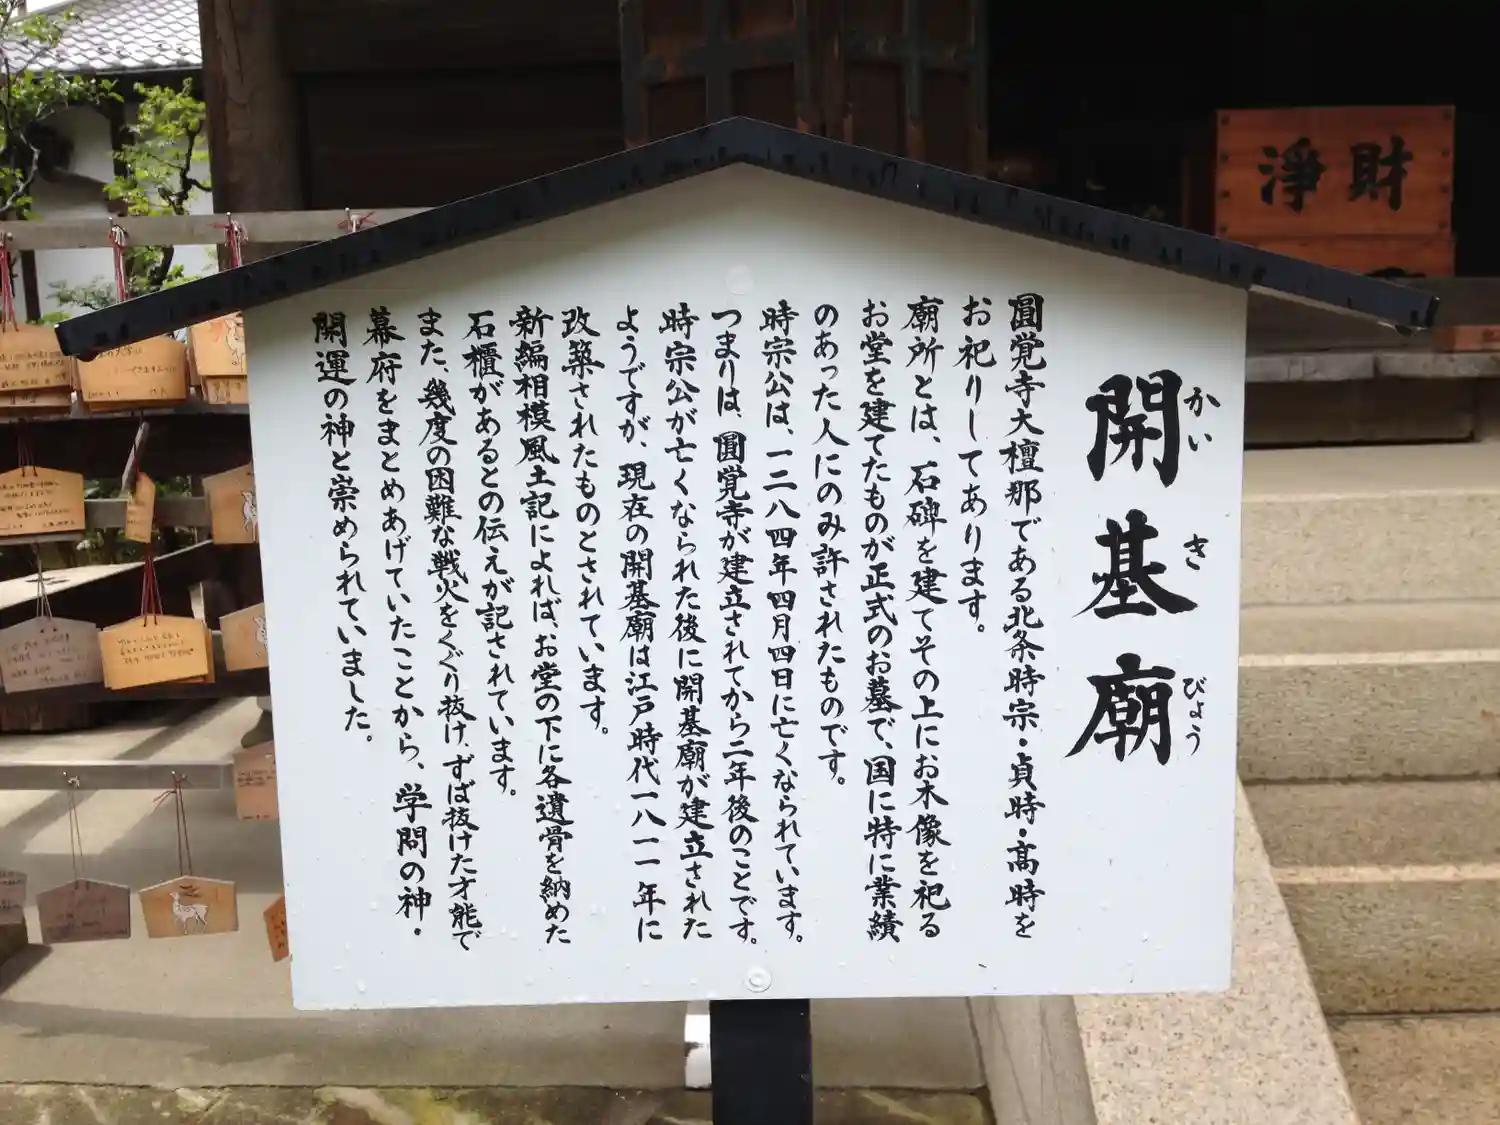 開基廟
かいきびょう
圓覚寺大檀那である北条時宗・貞時・高時を
お祀りしてあります。
廟所とは、石碑を建てその上にお木像を祀る
お堂を建てたものが正式のお墓で、国に特に業績
のあった人にのみ許されたものです。
時宗公は、一二八四年四月四日に亡くなられています。
つまりは、圓覚寺が建立されてから二年後のことです。
時宗公が亡くなられた後に開基廟が建立された
ようですが、現在の開基廟は江戸時代一八一一年に
改築されたものとされています。
新編相模風土記によれば、お堂の下に各遺骨を納めた
石櫃があるとの伝えが記されています。
また、幾度の困難な戦火をくぐり抜け、ずば抜けた才能で
幕府をまとめあげていたことから、学問の神・
開運の神と崇められていました。
淨財